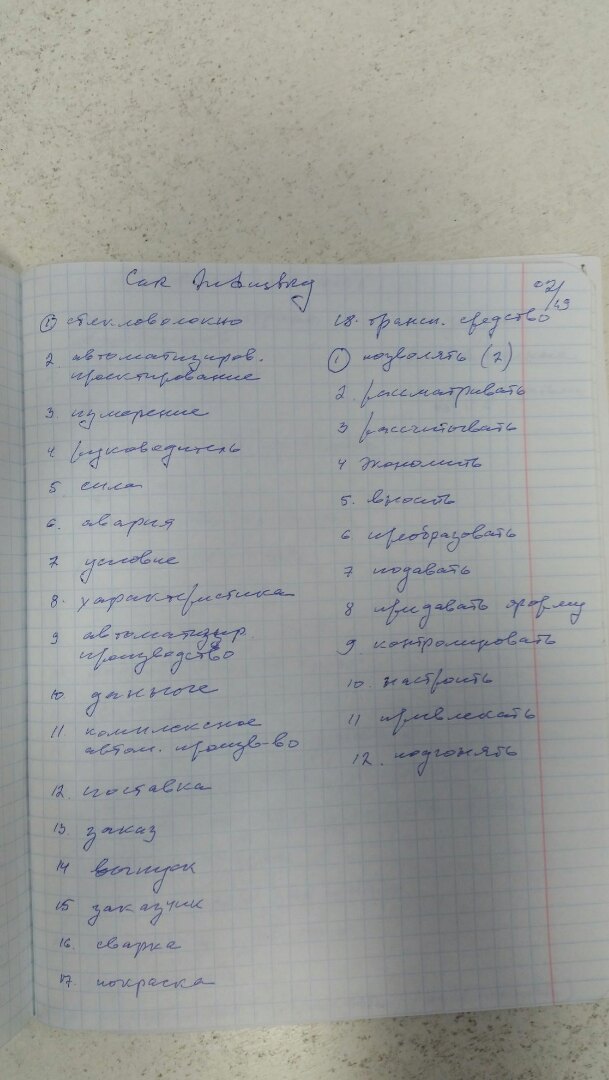 Car
02/
19
① стекловолокно
2. автоматизиров.
проектирование
3. измерение
4 руководитель
5. сила
6. авария
7 условие
8. характеристика
9 автоматизир.
производство
10. данные
11. комплексное
автом. произв-во
12. поставка
13. заказ
14 выпуск
15 заказчик
16. сварка
17. покраска
18. трансп. средство
① позволять (2)
2. рассматривать
3 рассчитывать
4 экономить
5. вносить
6 преобразовать
7 подавать
8 придавать форму
9 контролировать
10. настроить
11 привлекать
12. подгонять